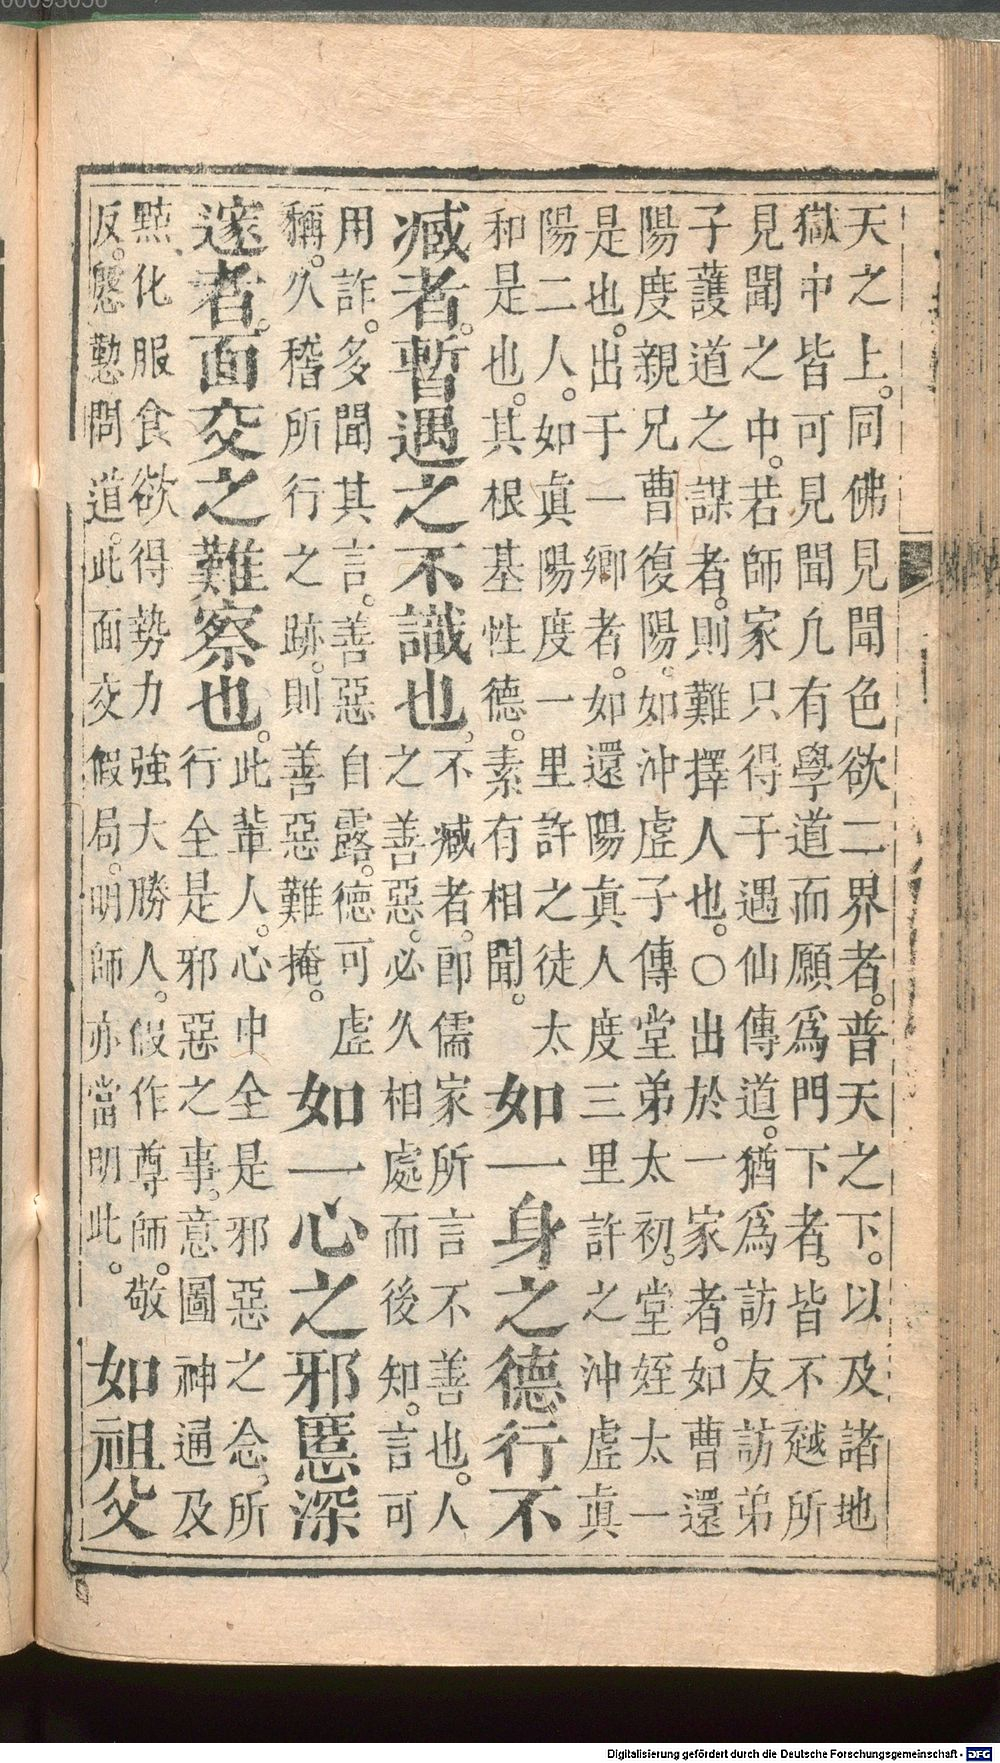 天之上。同佛見聞色欲二界者。普天之下。以及諸地
獄中皆可見聞凢有學道而願爲門下者。皆不越所
見聞之中。若師家只得于遇仙傳道。猶爲訪友訪弟
子護道之謀者。則難擇人也。〇出於一家者。如曹還
陽度親兄曹復陽。如沖虛子傳堂弟太初。堂姪太一
是也。出于一鄉者。如還陽真人度三里許之沖虛真
陽二人。如真陽度一里許之徒太
和是也。其根基性德。素有相聞。
如一身之德行不
臧者。暫遇之不識也。
不臧者。即儒家所言不善也。人
之善惡。必久相處而後知。言可
用詐。多聞其言。善惡自露。德可虛
稱。久稽所行之跡。則善惡難掩。
如一心之邪慝深
邃者。面交之難察也。
此輩人。心中全是邪惡之念。所
行全是邪惡之事。意圖神通及
點、化服食欲得勢力強大勝人。假作尊師。敬
反。慇懃問道。此面交假局。明師亦當明此。
如祖父
Digitalisierung gefördert durch die Deutsche Forschungsgemeinschaft - DFG